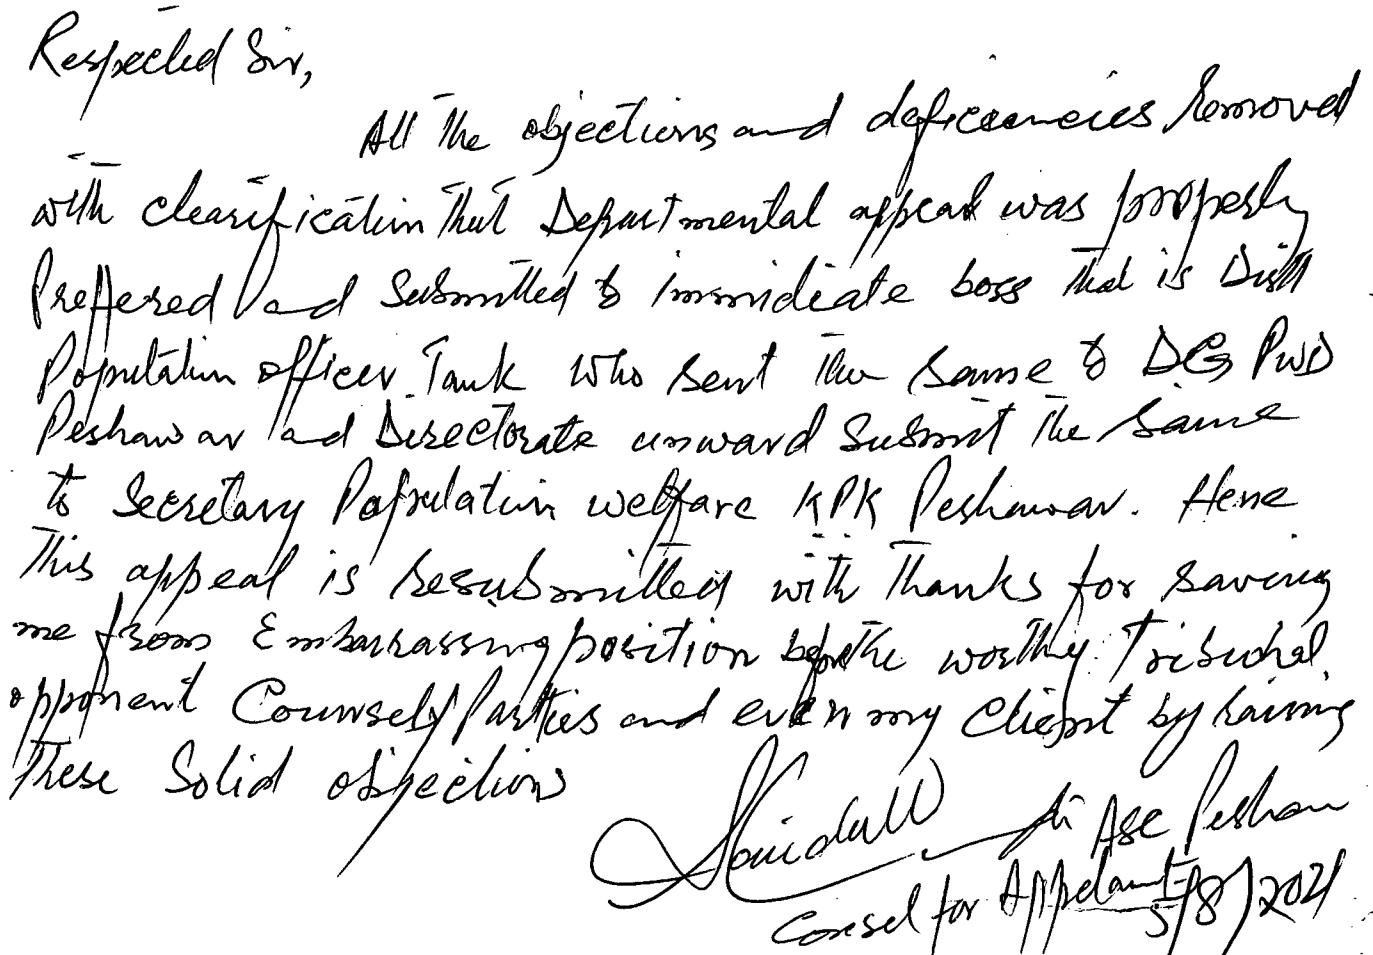 Respected Sir,
All the objections and deficiencies removed
with clearification that Departmental appeal was properly
Preffered and Submitted to immidiate boss that is Distt
Population officer Tank who sent the same to DG PWD
Peshawar and Directorate unward Submit the same
to Secretary Population welfare KPK Peshawar. Hene
This appeal is resubmitted with thanks for saving
me from Embarrassing position before the worthy Tribunal
opponent Counsels/Parties and even my client by raising
These Solid objections
ASC Peshaw
Consel for Appelant
5/8/2021